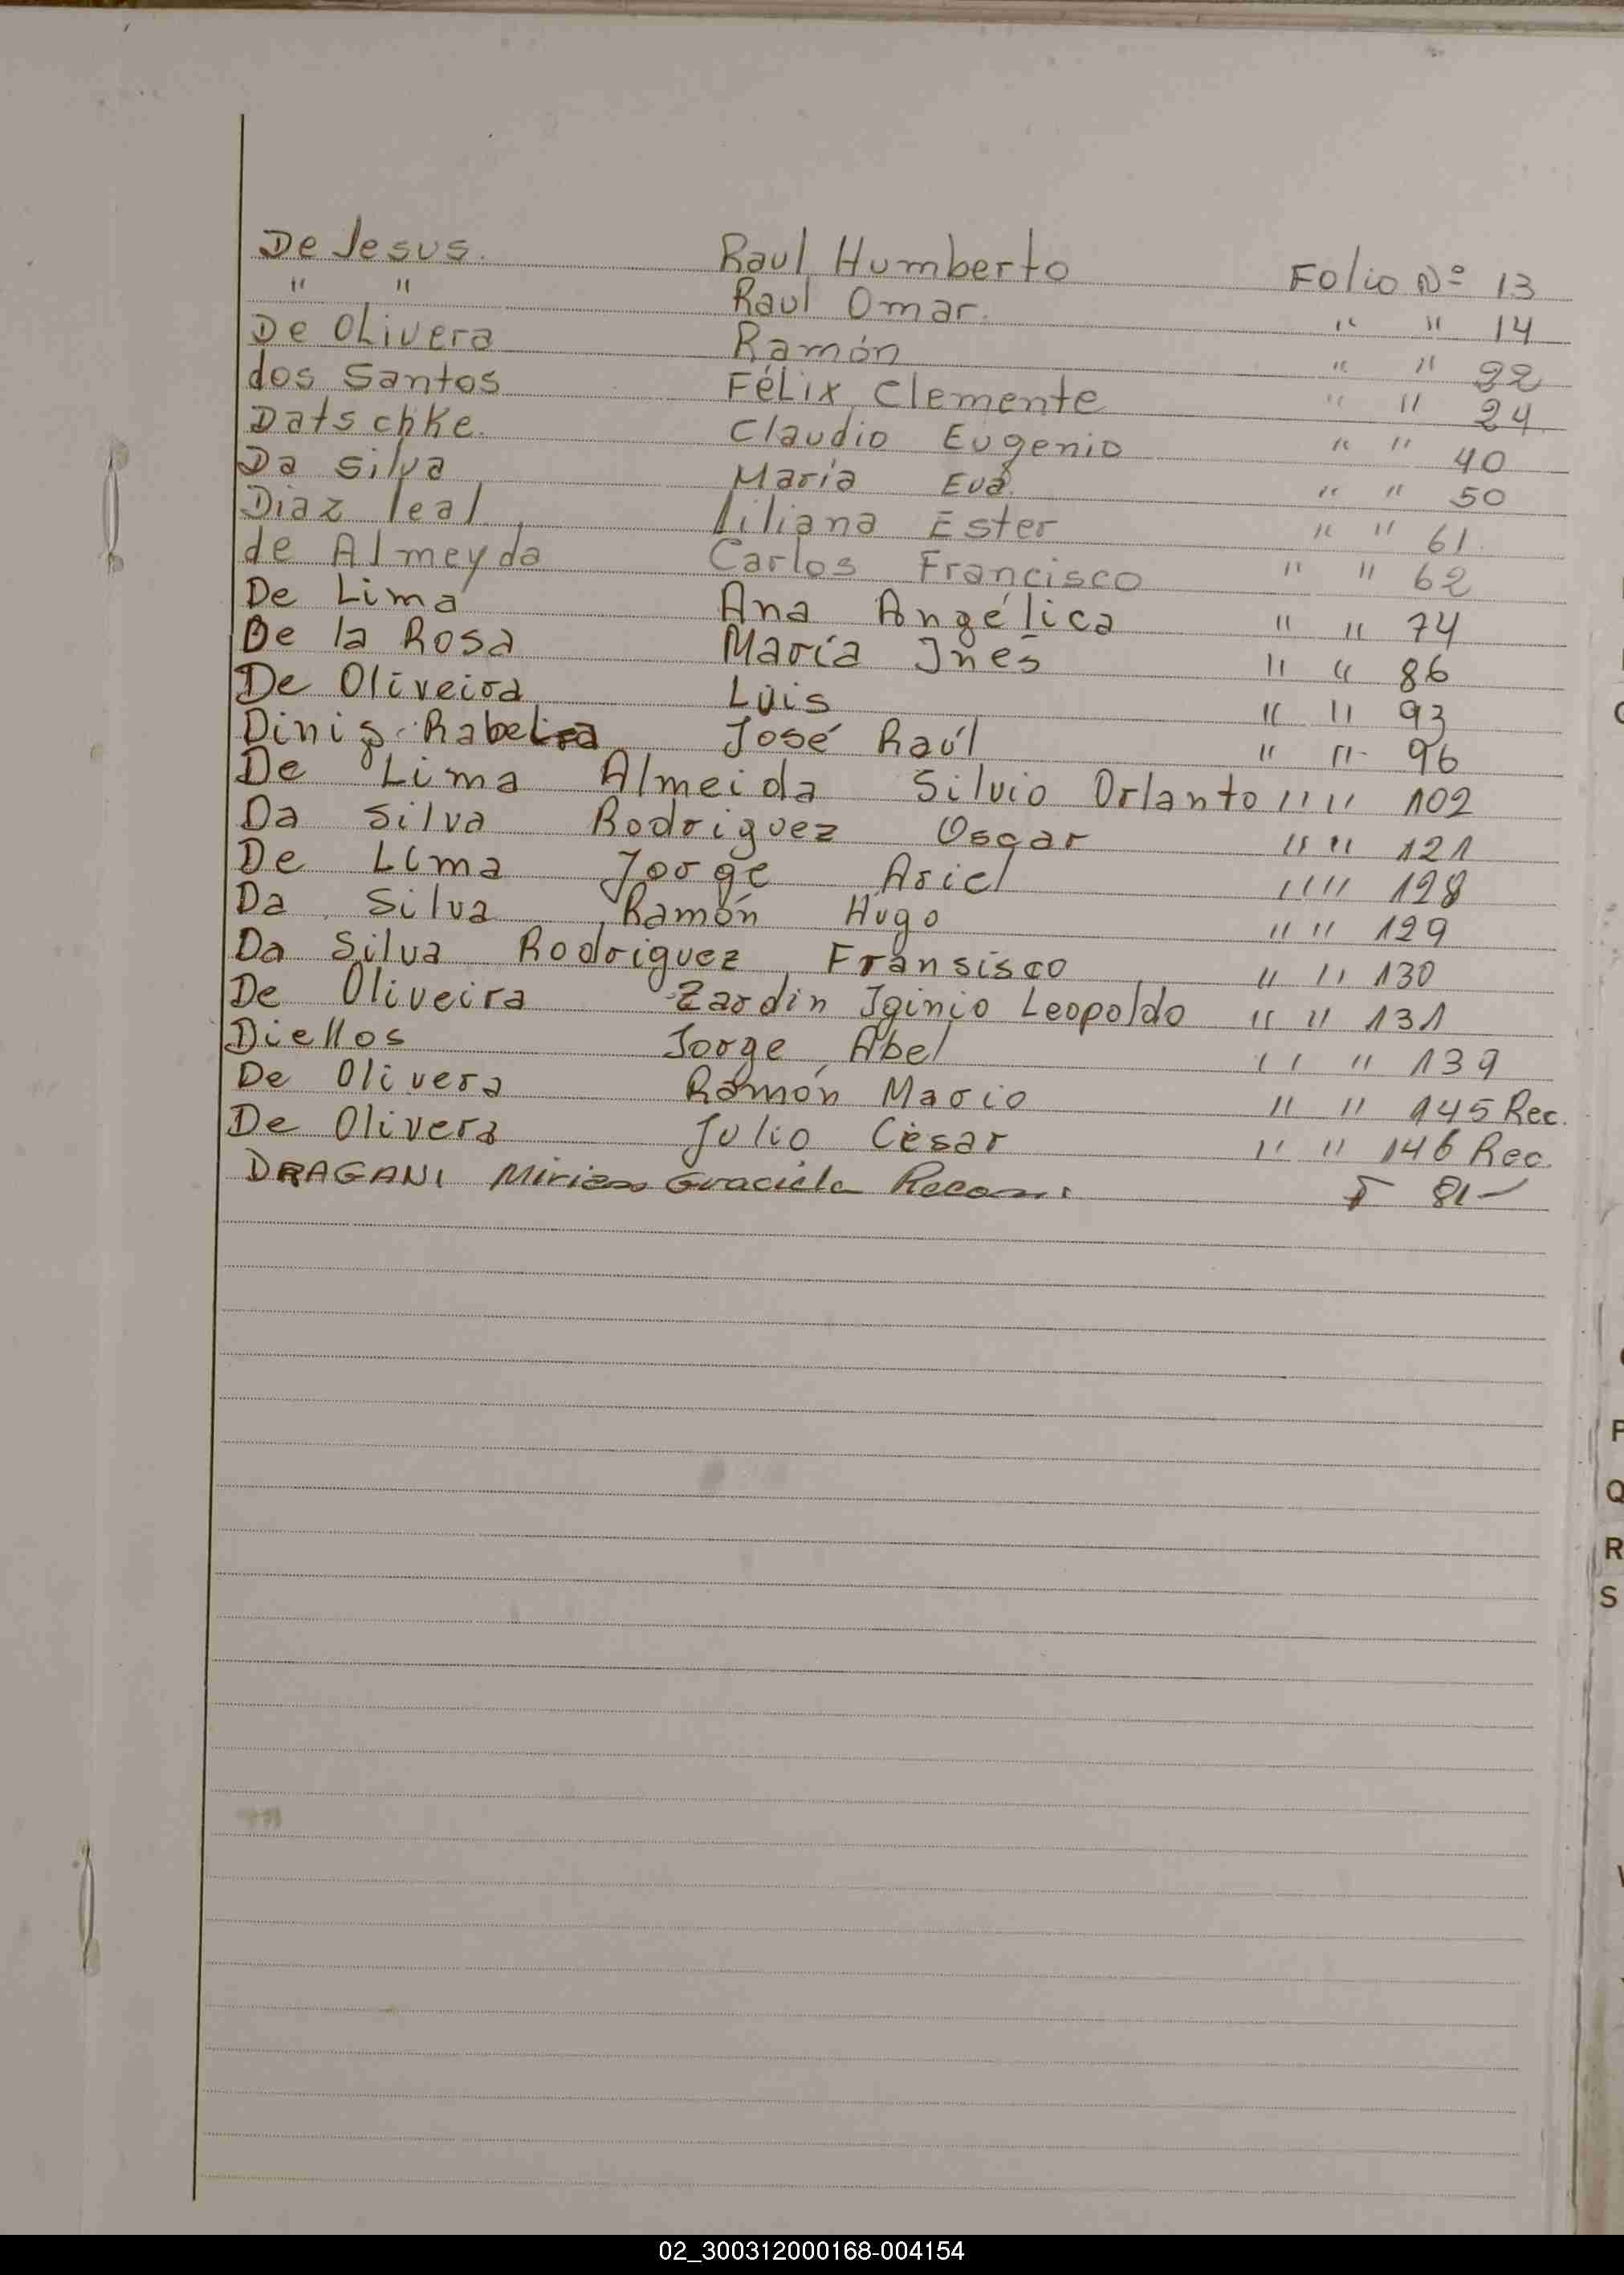 De Jesus. Raul Humberto Folio Nº 13
" " Raul Omar. " " 14
De OLivera Ramón " " 22
dos Santos FéLix Clemente " " 24
Datschke. Claudio Eugenio " " 40
Da Silva María Eva. " " 50
Diaz leal Liliana Ester " " 61
de Almeyda Carlos Francisco " " 62
De Lima Ana Angélica " " 74
De la Rosa María Inés " " 86
De Oliveira Luis " " 93
Diniz José Raúl " " 96
De Lima Almeida Silvio Orlanto " " 102
Da Silva Rodriguez Oscar " " 121
De Lima Jorge Ariel " " 128
Da Silva Ramón Hugo " " 129
Da Silva Rodriguez Fransisco " " 130
De Oliveira Zardin Iginio Leopoldo " " 131
Diellos Jorge Abel " " 139
De Olivera Ramón Mario " " 145 Rec.
De Olivera Julio Cesar " " 146 Rec.
DRAGANI Miriam Graciela F 81
P
Q
R
S
02_300312000168-004154